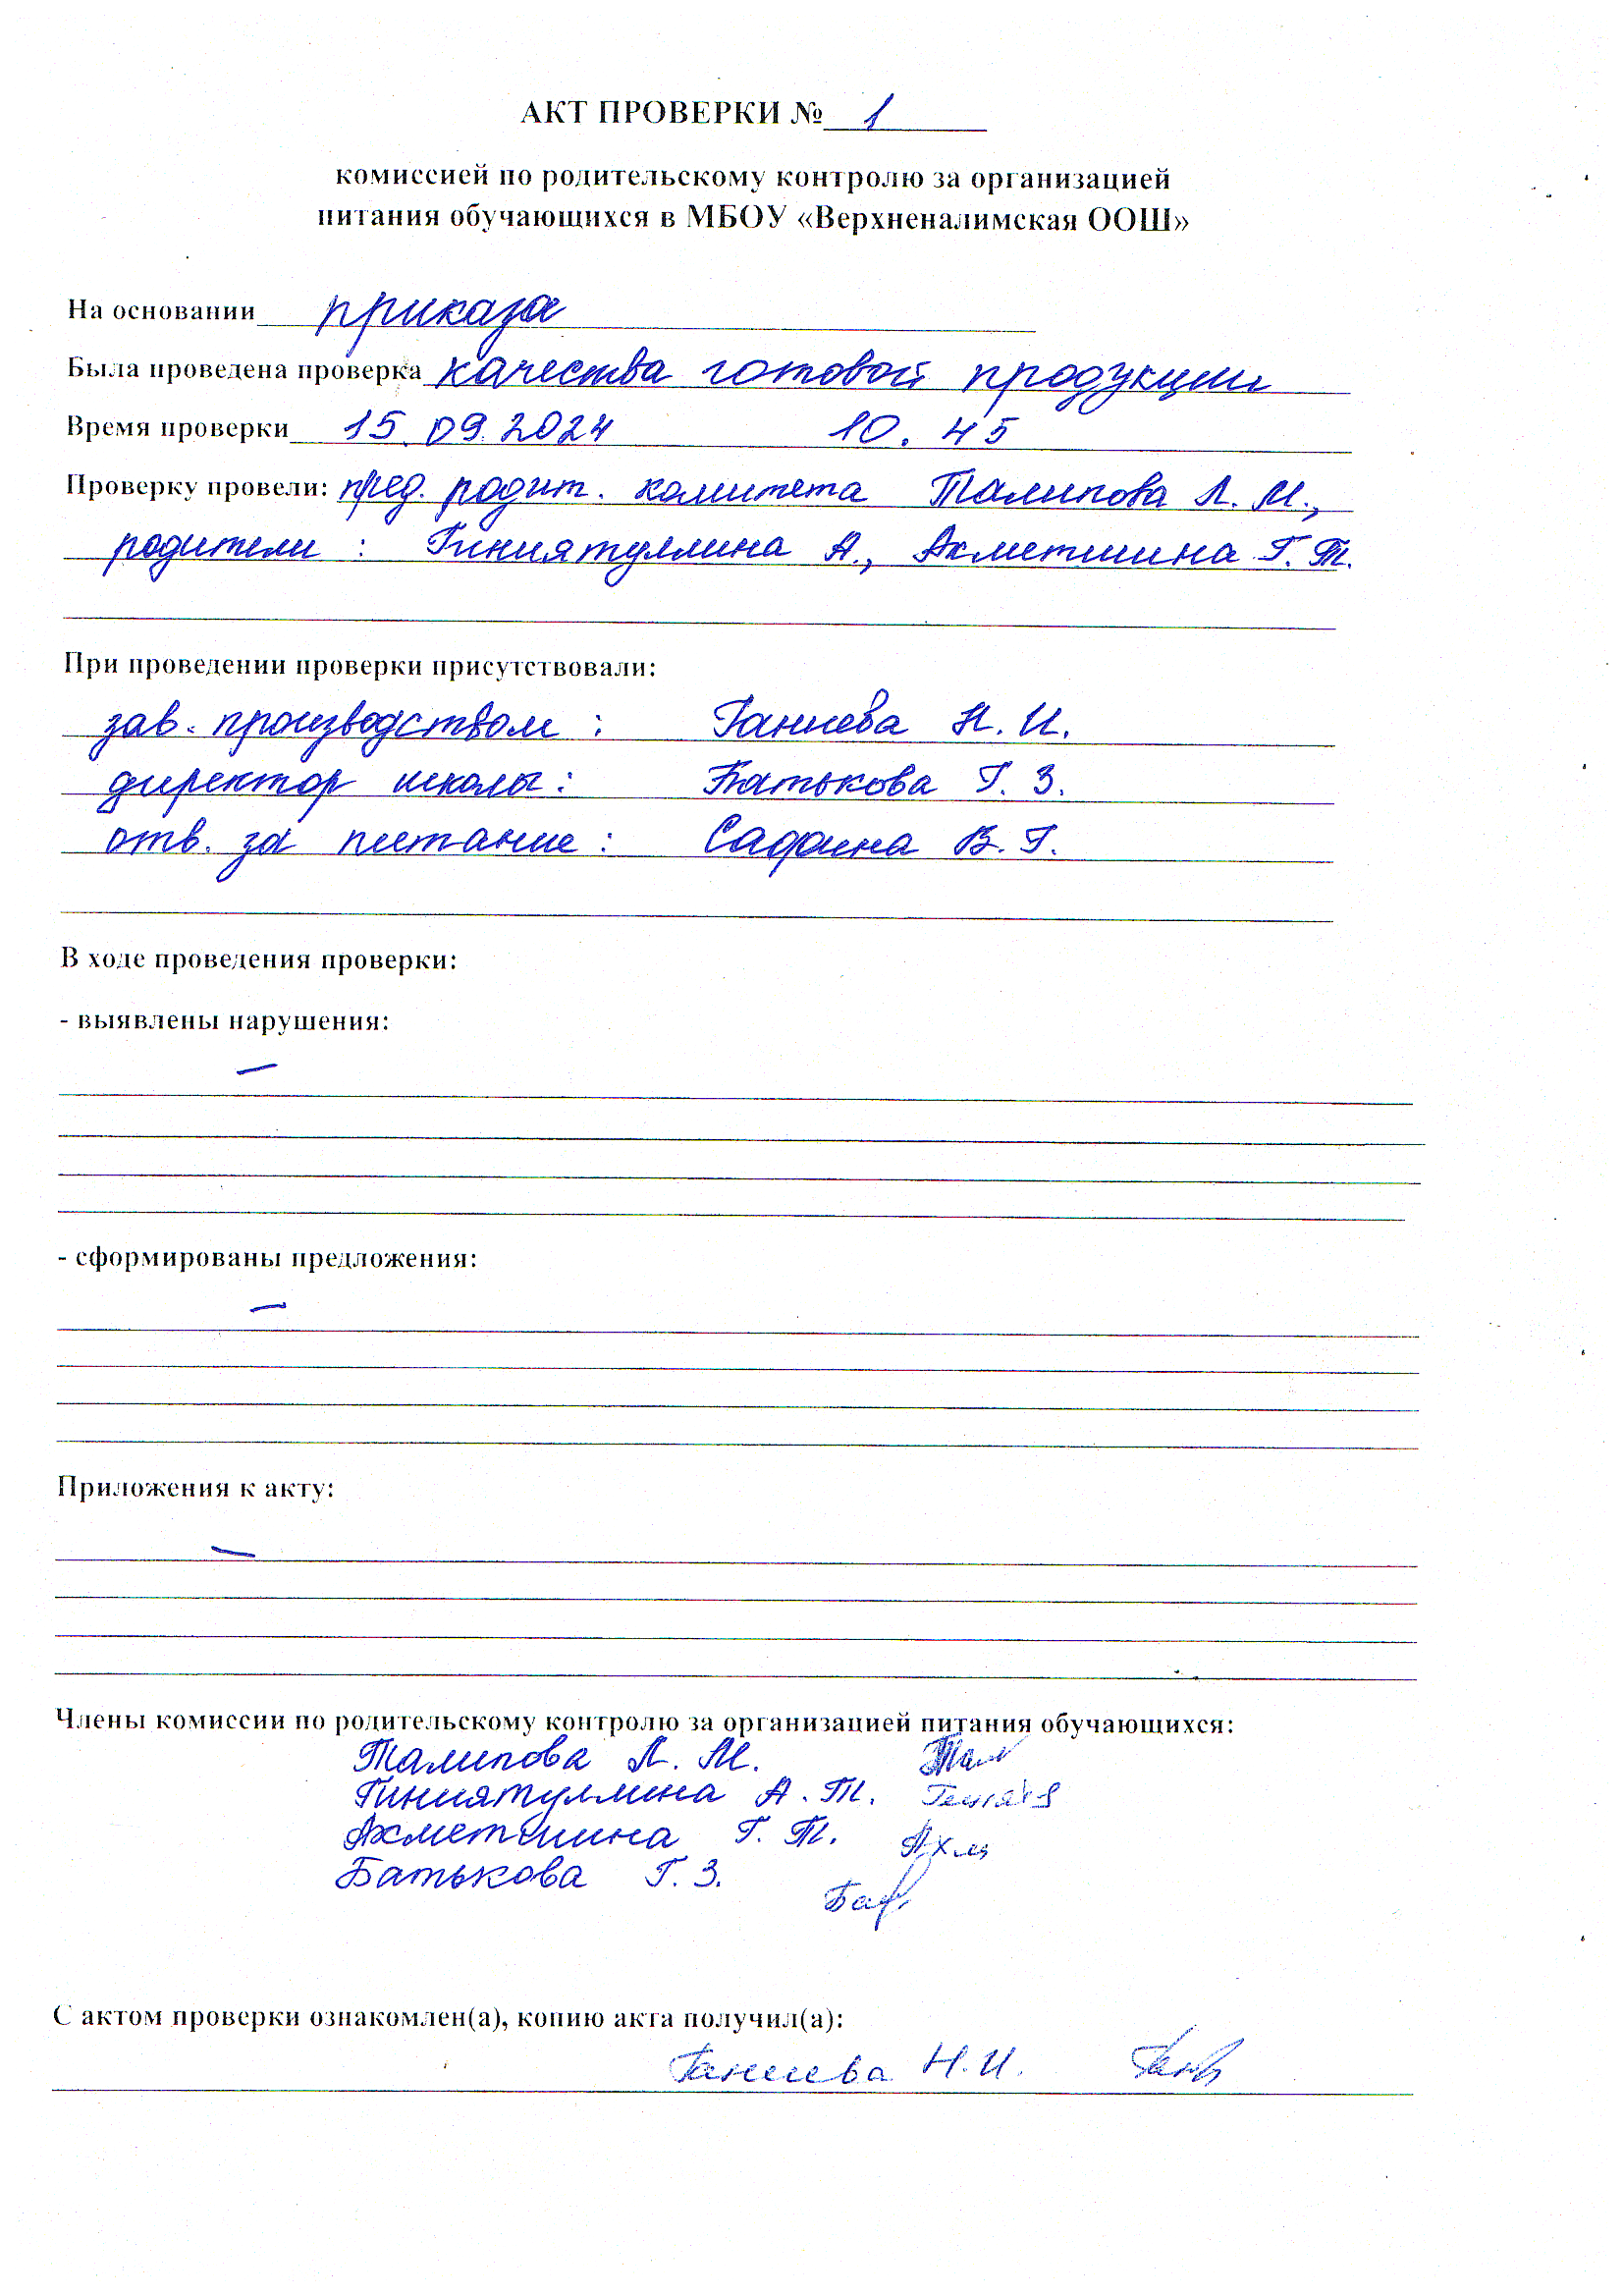 АКТ ПРОВЕРКИ № 1
комиссией по родительскому контролю за организацией
питания обучающихся в МБОУ «Верхненалимская ООШ»
На основании приказа
Была проведена проверка качества готовой продукции
Время проверки 15.09.2024 10.45
Проверку провели: пред. родит. комитета Талипова Л. М.,
родители : Гиниятуллина А., Ахметшина Г. Т.
При проведении проверки присутствовали:
зав. производством : Ганиева Н. И.
директор школы : Батькова Г. З.
отв. за питание : В. Г.
В ходе проведения проверки:
- выявлены нарушения:
—
- сформированы предложения:
—
Приложения к акту:
—
Члены комиссии по родительскому контролю за организацией питания обучающихся:
Талипова Л. М. Тал
Гиниятуллина А. Т.
Ахметшина Г. Т. Ахм
Батькова Г. З.
С актом проверки ознакомлен(а), копию акта получил(а):
Ганиева Н. И.